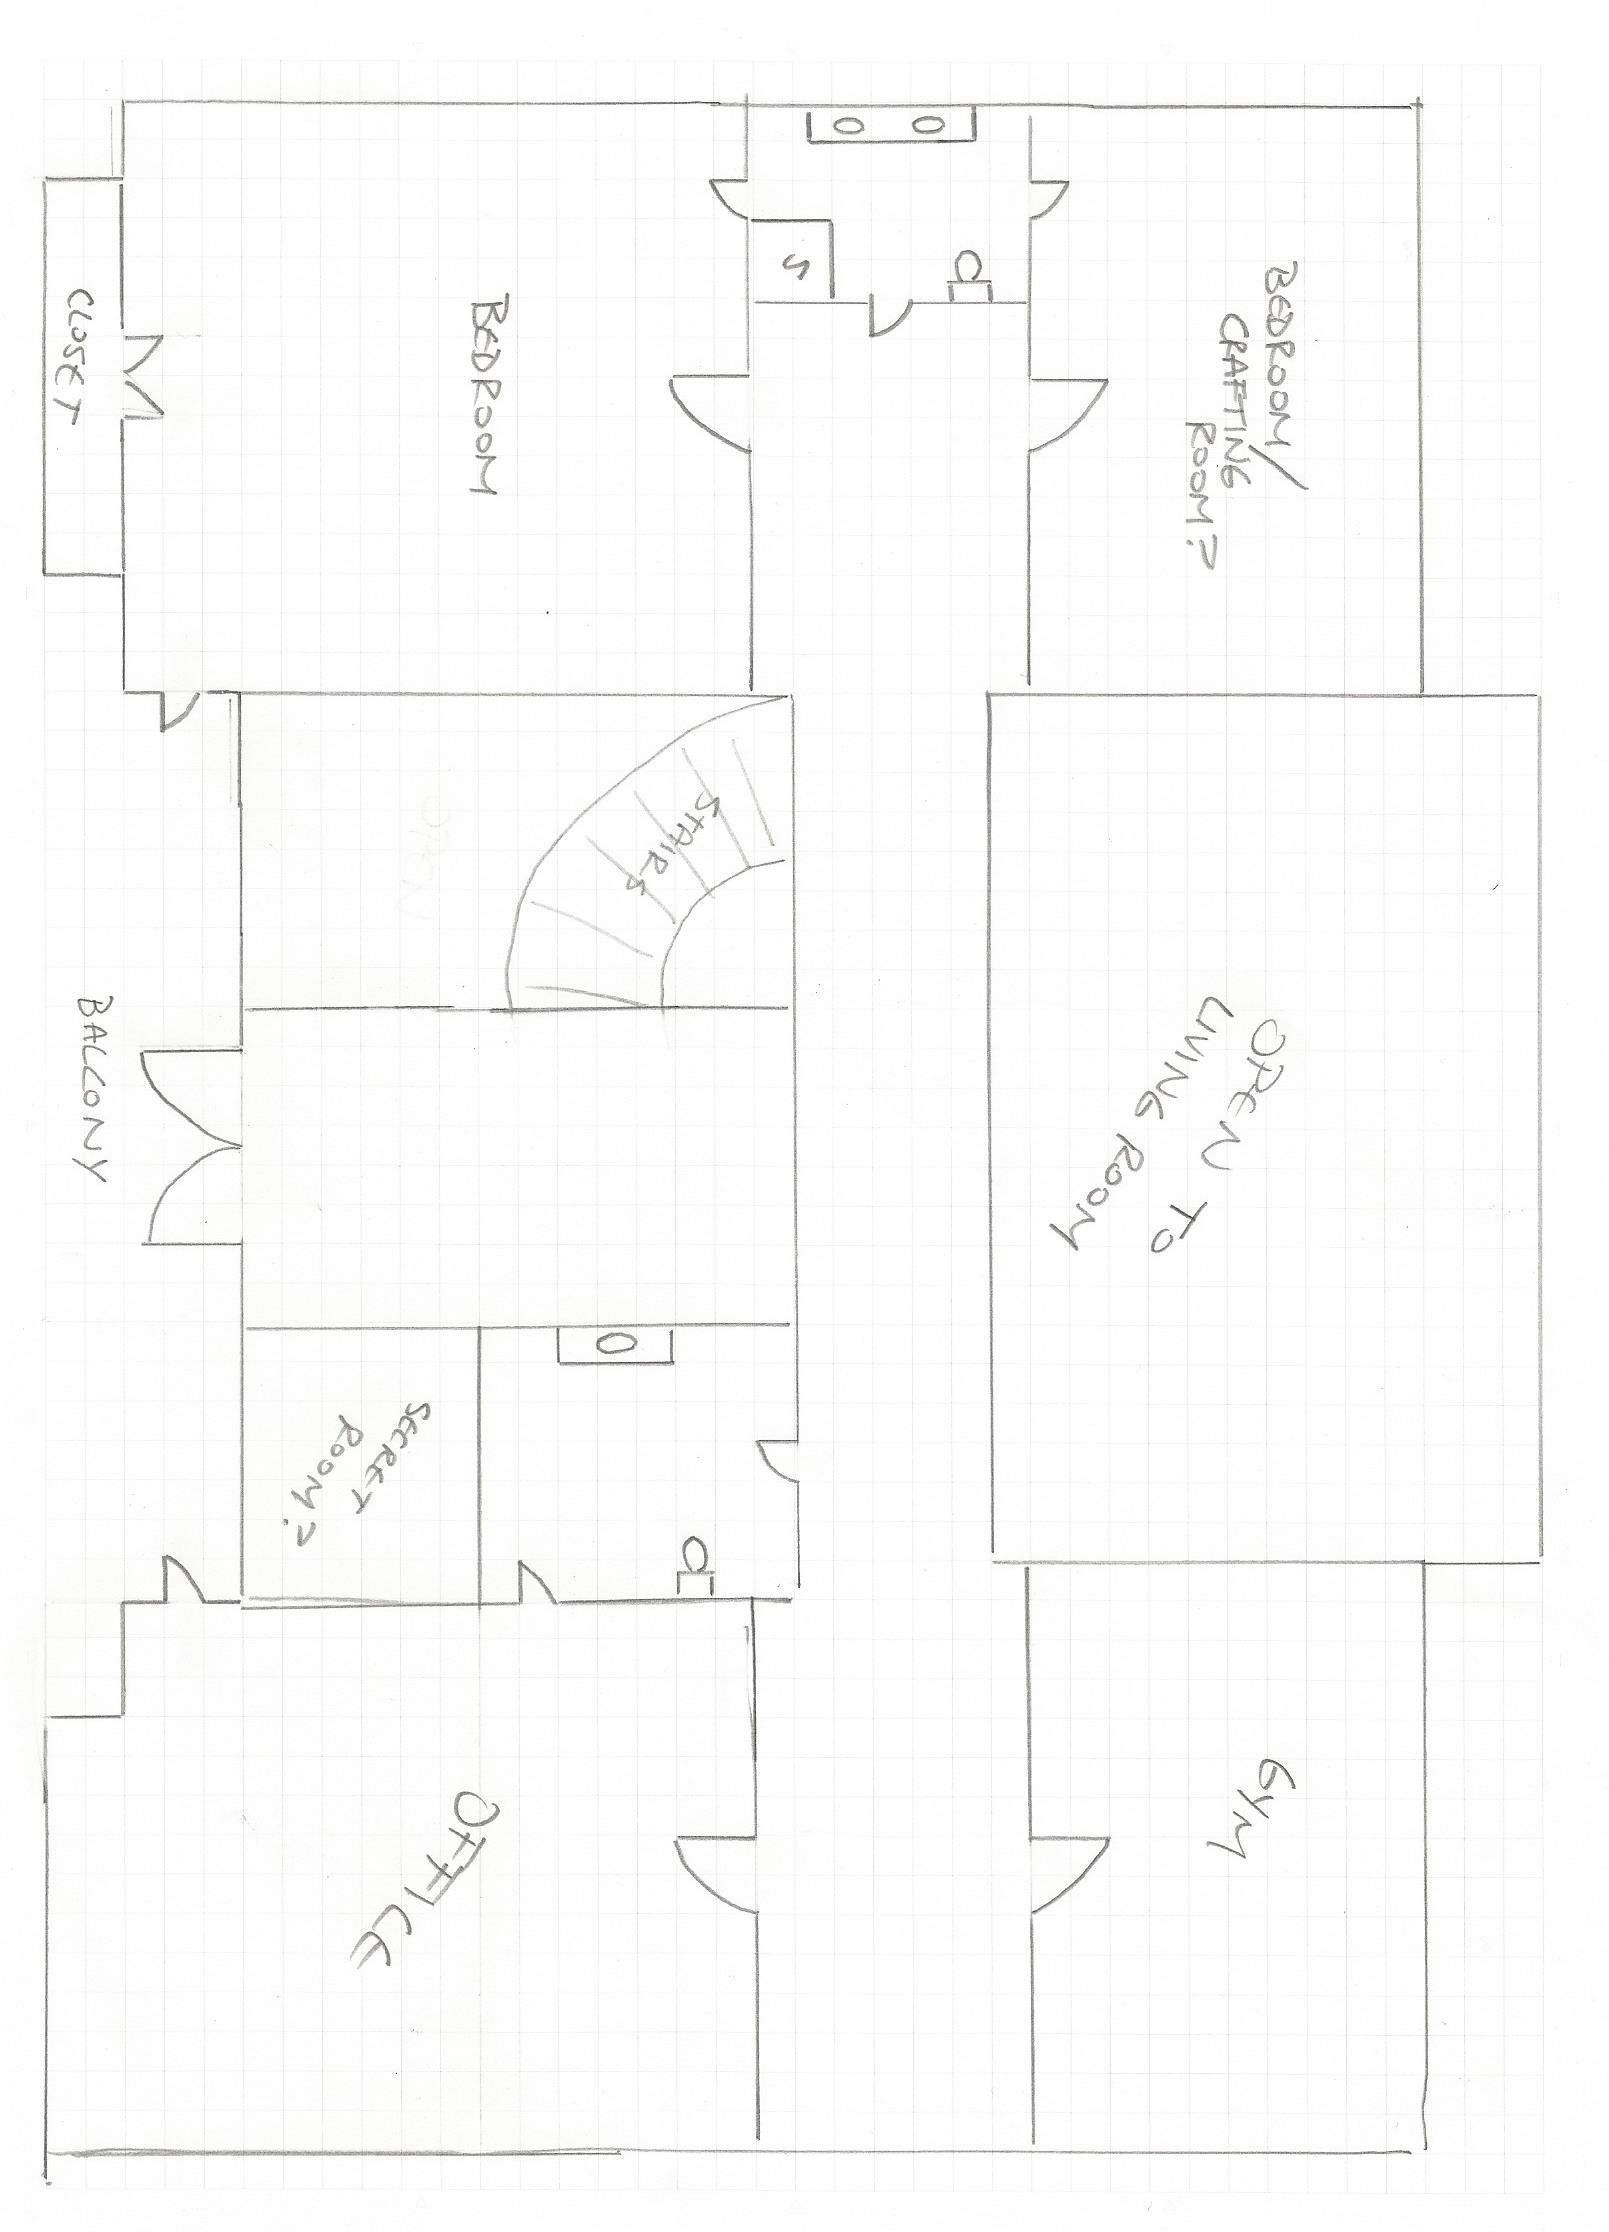 BEDROOM/
CRAFTING
ROOM?
OPEN TO
LIVING ROOM
GYM
S
STAIRS
BEDROOM
OPEN
SECRET
ROOM?
OFFICE
CLOSET
BALCONY